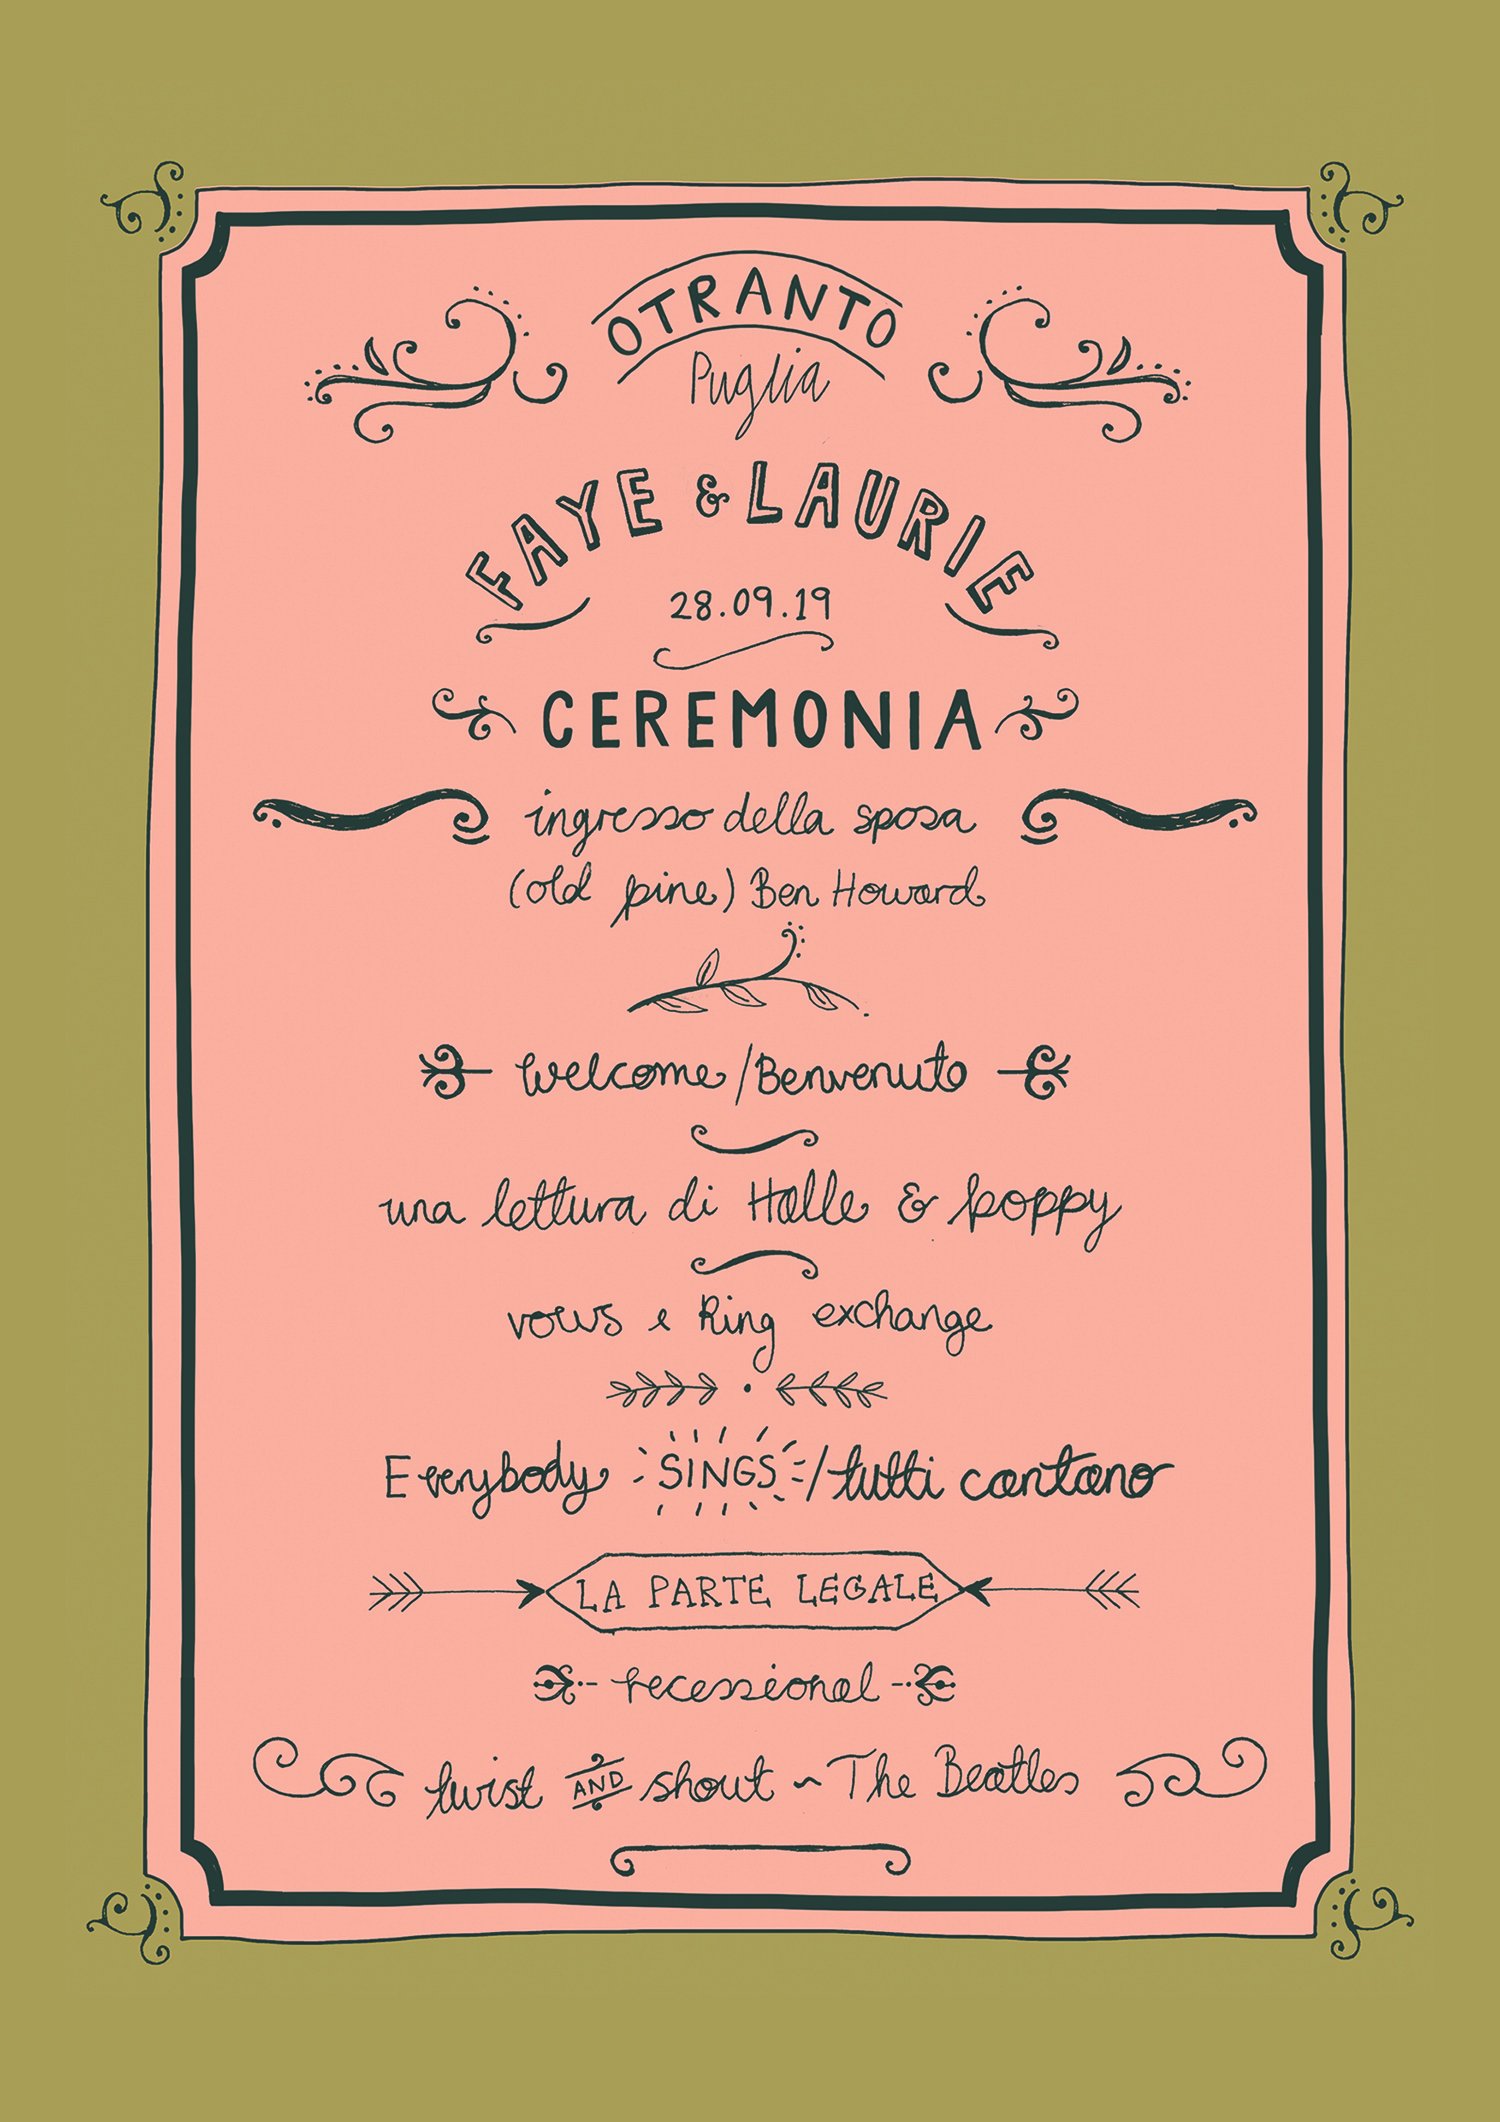 OTRANTO
Puglia
FAYE & LAURIE
28.09.19
CEREMONIA
ingresso della sposa
(old pine) Ben Howard
welcome/Benvenuto
una lettura di Halle & poppy
vows e Ring exchange
Everybody SINGS/tutti cantano
LA PARTE LEGALE
recessional
twist AND shout ~ The Beatles